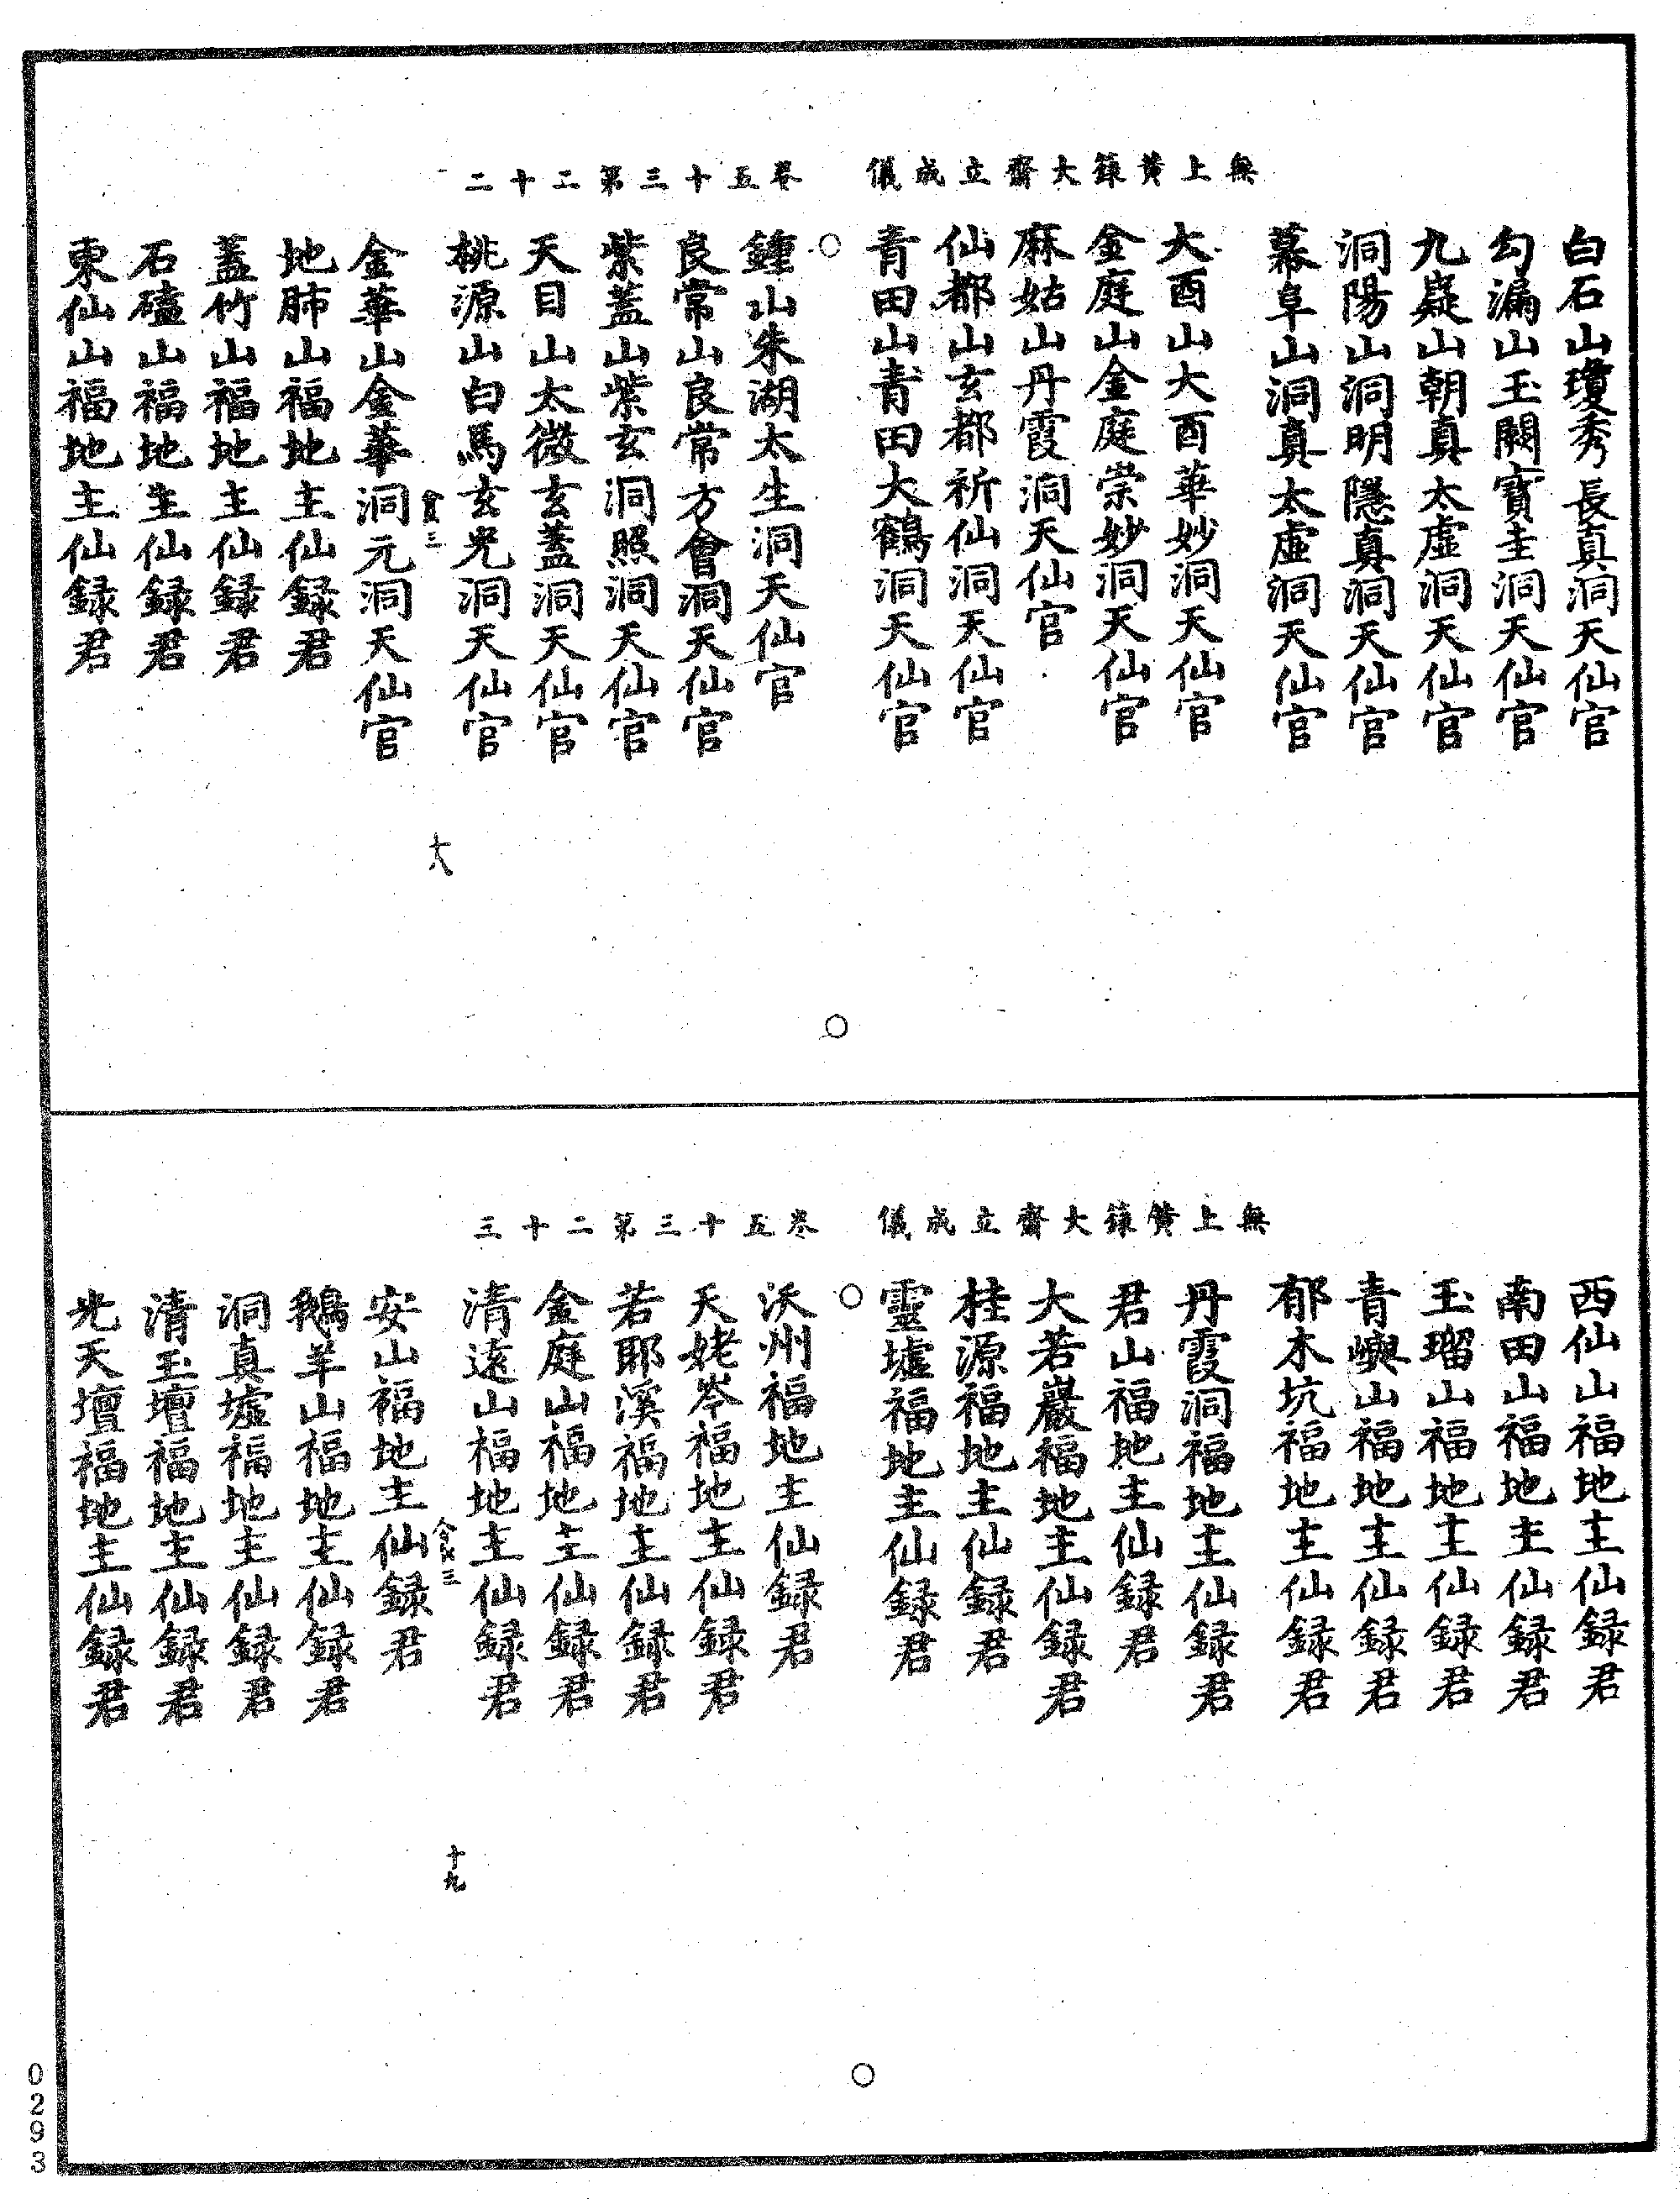 無上黃籙大齋立成儀　卷五十三第二十二
白石山瓊秀長真洞天仙官
勾漏山玉闕寶圭洞天仙官
九嶷山朝真太虛洞天仙官
洞陽山洞明隱真洞天仙官
幕阜山洞真太虛洞天仙官
大酉山大酉華妙洞天仙官
金庭山金庭崇妙洞天仙官
麻姑山丹霞洞天仙官
仙都山玄都祈仙洞天仙官
青田山青田大鶴洞天仙官
鍾山朱湖太生洞天仙官
良常山良常方會洞天仙官
紫蓋山紫玄洞照洞天仙官
天目山太微玄蓋洞天仙官
桃源山白馬玄光洞天仙官
十八
金華山金華洞元洞天仙官
地肺山福地主仙録君
蓋竹山福地主仙録君
石磕山福地主仙録君
東仙山福地主仙録君
無上黃籙大齋立成儀　卷五十三第二十三
西仙山福地主仙録君
南田山福地主仙録君
玉瑠山福地主仙録君
青嶼山福地主仙録君
郁木坑福地主仙録君
丹霞洞福地主仙録君
君山福地主仙録君
大若巖福地主仙録君
桂源福地主仙録君
靈墟福地主仙録君
沃州福地主仙録君
天姥岑福地主仙録君
若耶溪福地主仙録君
金庭山福地主仙録君
清遠山福地主仙録君
十九
安山福地主仙録君
鵝羊山福地主仙録君
洞真墟福地主仙録君
清玉壇福地主仙録君
光天壇福地主仙録君
0293